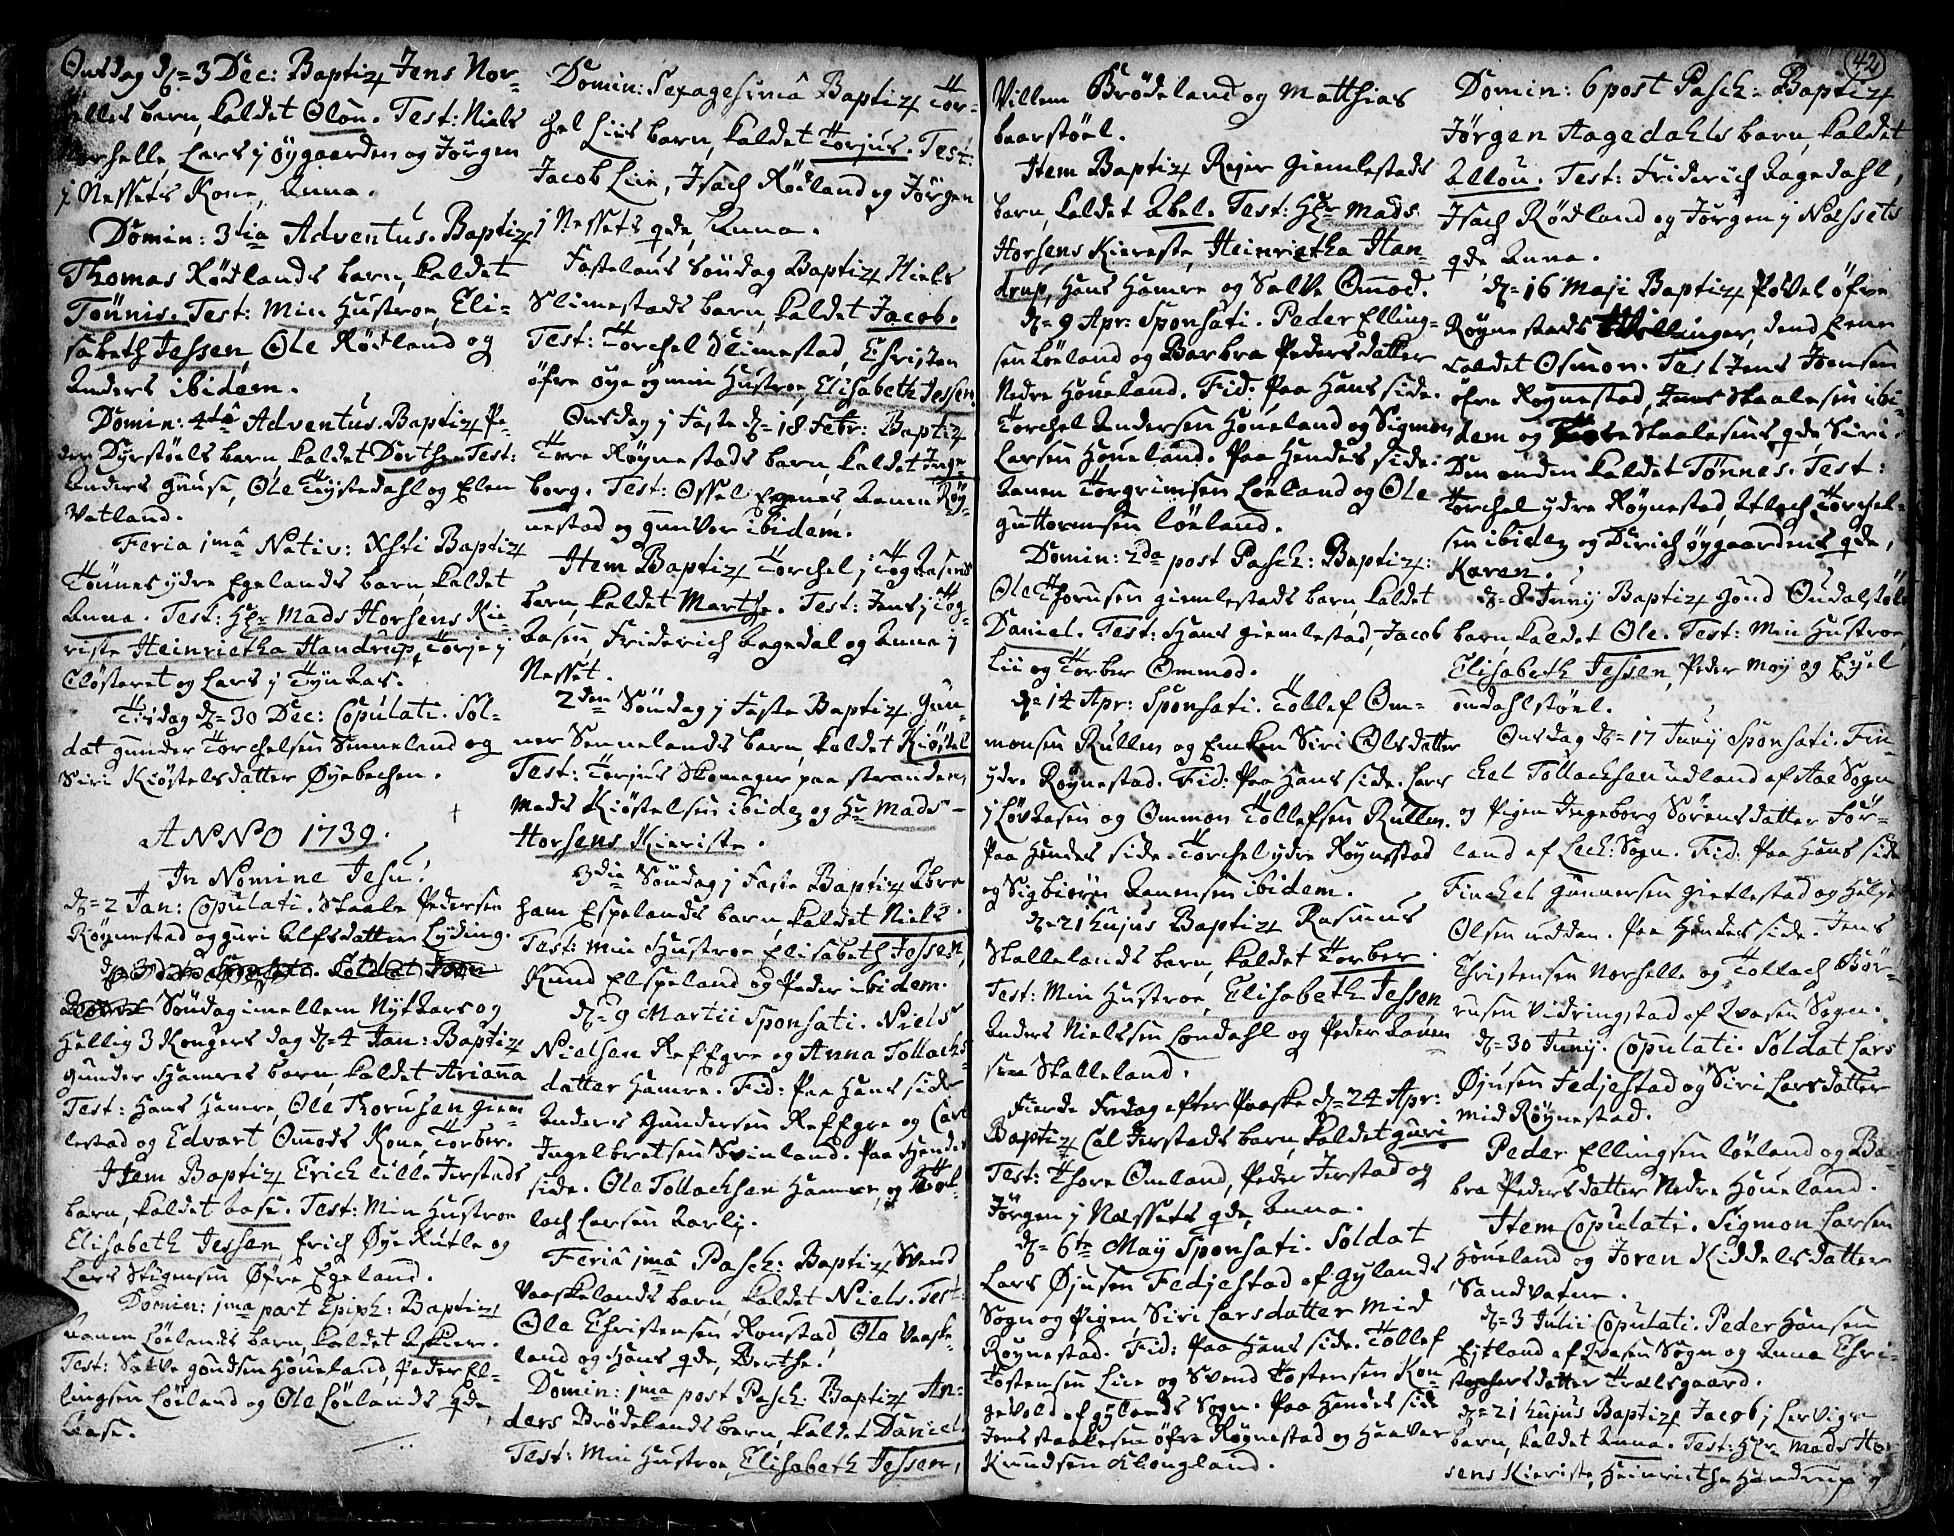 Onsdag d= 3 Dec: Baptiz Jens Nor-
helles barn, kaldet Oloü. Test: Niels
Norhelle, Lars j øygaarden og Jørgen
j Nessets Kone, Anna.
Domin: 3tia Adventus. Baptiz
Thomas Rødlands barn, kaldet
Tönnis. Test: Min Hustroe, Eli-
sabeth Jessen, Ole Rødland og
Anders ibidem.
Domin: 4tâ Adventus. Baptiz Pe-
der Dyrstöels barn kaldet Dorthe. Test:
Anders Guuse, Ole Tystedahl og Elen
Vatland.
Feria jmâ Nativ: Xsti Baptiz
Tönnes ydre Egelands barn, kaldet
Anna. Test: Hr Mads Horsens Kie-
riste Heinrietha Handrup, Torje j
Clösteret og Lars j
Tisdag d= 30 Dec: Copulati. Sol-
dat gunder Torchelsen Sinneland og
Siri Kiöstelsdatter Øyebechen.
ANNO 1739.
In Nomine Jesu!
d= 2 Jan: Copulati. Staale Pedersen
Röynestad og guri Alfsdatter Lyding.
Söndag imellem Nyt Aars og
Hellig 3 Kongers dag d= 4 Jan: Baptiz
gunder Hamres barn, kaldet Arianna
Test: Hans Hamre, Ole Thorusen Giem-
lestad og Edvart Omods Kone, Torber.
Item Baptiz Erich Lille Jerstads
barn, kaldet Aase. Test: Min Hustroe
Elisabeth Jessen, Erich Øye Rutle og
Lars Stigensen Øfre Egeland.
Domin: jma post Epiph: Baptiz
Aanen Löelands barn, kaldet
Test: Salve gundsen Houeland, Peder El-
lingsen Löeland og Ole Löelands qde,
Aase.
Domin: Sexagesimâ Baptiz Tor-
chel Liis barn, kaldet Torjus. Test:
Jacob Lii, Isach Rødland og Jörgen
j Nessets qde, Anna.
Fastelaus Söndag Baptiz Niels
Slimestads barn, kaldet Jacob.
Test: Torchel Slimestad, Christen
öfre öye og min Hustroe, Elisabeth Jessen.
Onsdag j Faste d= 18 Febr: Baptiz
Tore Röynestads barn, kaldet Inge-
borg. Test: Ossel Egenes, Aanen Röy-
nestad og gunvor ibidem.
Item Baptiz Torchel j
barn, kaldet Marthe. Test: Jens j
Aasen, Friderich Aagedal og Anna j
Nesset.
2den Söndag j Faste Baptiz Gun-
ner Sennelands barn, kaldet Kiöstel
Test: Torjus Skomager paa stranden,
Mads Kiöstelsen ibidem og Hr Mads
Horsens Kieriste.
3dia Söndag j Faste Baptiz Abra-
ham Espelands barn, kaldet Niels.
Test: Min Hustroe Elisabeth Jessen,
Knud Elspeland og Peder ibidem.
d= 9 Martii Sponsati. Niels
Nielsen Reffgre og Anna Tollachs-
datter Hamre. Fid: Paa Hans side
Anders Gundersen Reffgre og Carl
Ingelbretsen Svinland. Paa Hendes
side. Ole Tollachsen Hamre, og Tol-
lach Larsen Aarli.
Feriâ jmâ Pasch: Baptiz Svend
Vaaskelands barn, kaldet Niels. Test:
Ola Christensen Ronstad Ola Vaaske-
land og Hans qde, Berthe.
Domin: jma post Pasch: Baptiz An-
ders Brödelands barn, kaldet Daniel.
Test: Min Hustroe, Elisabeth Jessen,
42
Villem Brödeland og Matthias
baarstöel.
Item Baptiz Rejer Giemlestads
barn, kaldet Abel. Test: Hr Mads
Horsens Kieriste, Heinrietha Han-
drup, Hans Hamre og Salve Omod.
d= 9 Apr: Sponsati. Peder Elling-
sen Löeland og Barbra Pedersdatter
Nedre Houeland. Fid: Paa Hans side.
Torchel Andersen Houeland og Sigmon
Larsen Houeland. Paa Hendes side.
Aanen Torgrimsen Löeland og Ole
Guttormsen löeland.
Domin: 2da post Pasch: Baptiz:
Ole Thorusen giemlestads barn, kaldet
Daniel. Test: Hans giemlestad, Jacob
Lii og Torber Ommod.
d= 14 Apr: Sponsati. Tollef Om-
monsen Rullen og Enken Siri Olsdatter
ydre Roynestad. Fid: Paa Hans side. Lars
j Löv Aasen og Ommon Tollefsen Rullen.
Paa Hendes side. Torchel ydre Roynestad
og Sigbiörn Aanensen ibidem.
d= 21 hujus Baptiz Rasmus
Stallelands barn, kaldet Torber.
Test: Min Hustroe, Elisabeth Jessen
Anders Nielssen Londahl og Peder Aanen-
sen Stalleland.
Fierde Fredag efter Paaske d= 24 Apr:
Baptiz Cal Jerstads barn, kaldet guri
Test: Thore Omland, Peder Jerstad og
Jørgen j Næssets qde, Anna.
d= 6te May Sponsati. Soldat
Lars Øjusen Fedjestad af Gylands
Sogn og Pigen Siri Larsdatter Mid
Roynestad. Fid: Paa Hans side. Tollef
Tostensen Liie og Svend Tostensen Kon-
gevold af gylands Sogn. Paa Hendes side
Jens staalesen öfre Röynestad og Haaver
Knudsen Klongland.
Domin: 6 post Pasch: Baptiz
Jörgen Aagedahls barn, kaldet
Allou. Test: Friderich Aagedahl,
Isach Rødland og Jørgen j Næssets
qde Anna.
d= 16 Maji Baptiz Povel öfre
Røynestads tvillinger, dend Eene
kaldet Osmon. Test Jens Joensen
öfre Röynestad, Staalesen ibi-
dem og Tore Staalesens qde Siri.
Den anden kaldet Tönnes. Test:
Torchel ydre Röynestad, Atlach Torchel-
sen ibidem og Dirich öygaardens qde,
Karen.
d= 8 Junij Baptiz gund Oudalstöls
barn, kaldet Ole. Test: Min Hustroe
Elisabeth Jessen, Peder Moy og Eyel
oudahlstöel.
Onsdag d= 17 Junij Sponsati. Fin-
chel Tollachsen udland af Aae Sogn
og Pigen Ingeborg Sörensdatter För-
land af Lech: Sogn. Fid: Paa Hans side
Finchel Gunnersen gietlestad og Helje
Olsen uddan. Paa Hendes side. Jens
Christensen Norhelle og Tollach Bör-
rusen Vidringstad af Qvasen Sogn.
d= 30 Junij. Copulati. Soldat Lars
Øjusen Fedjestad og Siri Larsdatter
Mid Røynestad.
Peder Ellingsen löeland og Bar-
bra Pedersdatter Nedre Houeland.
Item Copulati. Sigmon Larsen
Houeland og Joren Kiddelsdatter
Sandvatne.
d= 3 Julii Copulati. Peder Hansen
Eitland af Qvasen Sogn og Anna Chri-
stophersdatter Trælsgaard.
d= 21 hujus Baptiz Jacob j Lervigs
barn, kaldet Anna. Test: Hr Mads Hor-
sens Kieriste, Heinrietha Handrup og